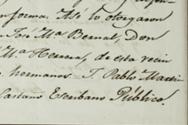 forma. Así lo otorgaron
José Mª Bernat, Don
Mª Herrera, de esta vecin
hermanos. J. Pablo Macti
Caetano Escribano Público